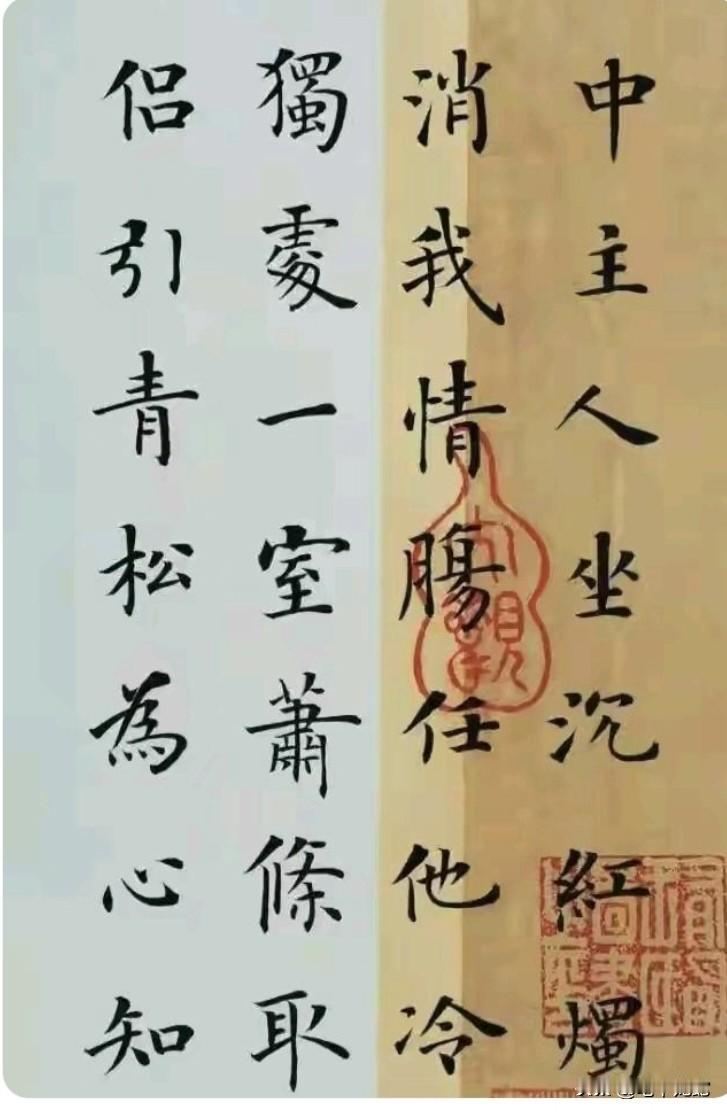 中主人坐沉紅燭
消我情腸任他冷
獨處一室蕭條取
侶引青松為心知